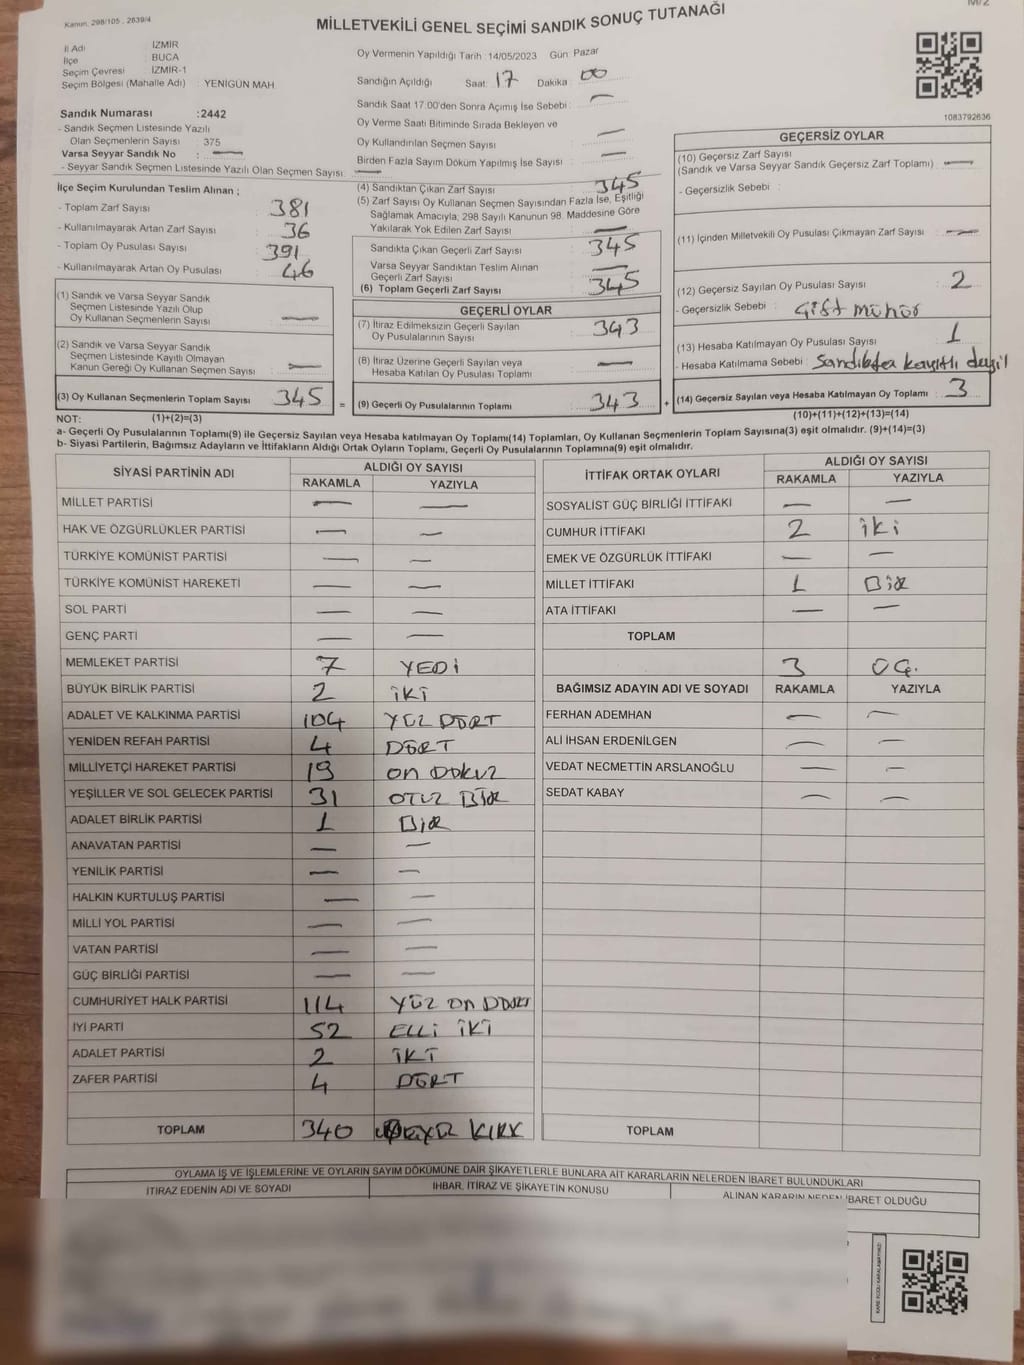 Kanun, 298/105 , 2839/4
M/2
MİLLETVEKİLİ GENEL SEÇİMİ SANDIK SONUÇ TUTANAĞI
İl Adı İZMİR
İlçe BUCA
Seçim Çevresi İZMİR-1
Seçim Bölgesi (Mahalle Adı) : YENİGÜN MAH.
Sandık Numarası :2442
- Sandık Seçmen Listesinde Yazılı
Olan Seçmenlerin Sayısı : 375
Varsa Seyyar Sandık No : —
- Seyyar Sandık Seçmen Listesinde Yazılı Olan Seçmen Sayısı: —
Oy Vermenin Yapıldığı Tarih :14/05/2023 Gün: Pazar
Sandığın Açıldığı Saat: 17 Dakika : 00
Sandık Saat 17.00'den Sonra Açımış İse Sebebi : —
Oy Verme Saati Bitiminde Sırada Bekleyen ve
Oy Kullandırılan Seçmen Sayısı : —
Birden Fazla Sayım Döküm Yapılmış İse Sayısı : —
1083792636
İlçe Seçim Kurulundan Teslim Alınan ;
- Toplam Zarf Sayısı : 381
- Kullanılmayarak Artan Zarf Sayısı : 36
- Toplam Oy Pusulası Sayısı : 391
- Kullanılmayarak Artan Oy Pusulası : 46
(1) Sandık ve Varsa Seyyar Sandık
Seçmen Listesinde Yazılı Olup
Oy Kullanan Seçmenlerin Sayısı : —
(2) Sandık ve Varsa Seyyar Sandık
Seçmen Listesinde Kayıtlı Olmayan
Kanun Gereği Oy Kullanan Seçmen Sayısı : —
(3) Oy Kullanan Seçmenlerin Toplam Sayısı : 345 =
(4) Sandıktan Çıkan Zarf Sayısı : 345
(5) Zarf Sayısı Oy Kullanan Seçmen Sayısından Fazla İse, Eşitliği
Sağlamak Amacıyla; 298 Sayılı Kanunun 98. Maddesine Göre
Yakılarak Yok Edilen Zarf Sayısı : —
Sandıkta Çıkan Geçerli Zarf Sayısı : 345
Varsa Seyyar Sandıktan Teslim Alınan
Geçerli Zarf Sayısı : —
(6) Toplam Geçerli Zarf Sayısı : 345
GEÇERLİ OYLAR
(7) İtiraz Edilmeksizin Geçerli Sayılan
Oy Pusulalarının Sayısı : 343
(8) İtiraz Üzerine Geçerli Sayılan veya
Hesaba Katılan Oy Pusulası Toplamı : —
(9) Geçerli Oy Pusulalarının Toplamı : 343 +
GEÇERSİZ OYLAR
(10) Geçersiz Zarf Sayısı
(Sandık ve Varsa Seyyar Sandık Geçersiz Zarf Toplamı) : —
- Geçersizlik Sebebi :
(11) İçinden Milletvekili Oy Pusulası Çıkmayan Zarf Sayısı : —
(12) Geçersiz Sayılan Oy Pusulası Sayısı : 2
- Geçersizlik Sebebi : Çift mühür
(13) Hesaba Katılmayan Oy Pusulası Sayısı : 1
- Hesaba Katılmama Sebebi : Sandıkta kayıtlı değil
(14) Geçersiz Sayılan veya Hesaba Katılmayan Oy Toplamı : 3
NOT: (1)+(2)=(3)
(10)+(11)+(12)+(13)=(14)
a- Geçerli Oy Pusulalarının Toplamı(9) ile Geçersiz Sayılan veya Hesaba katılmayan Oy Toplamı(14) Toplamları, Oy Kullanan Seçmenlerin Toplam Sayısına(3) eşit olmalıdır. (9)+(14)=(3)
b- Siyasi Partilerin, Bağımsız Adayların ve İttifakların Aldığı Ortak Oyların Toplamı, Geçerli Oy Pusulalarının Toplamına(9) eşit olmalıdır.
SİYASİ PARTİNİN ADI ALDIĞI OY SAYISI
RAKAMLA YAZIYLA
MİLLET PARTİSİ — —
HAK VE ÖZGÜRLÜKLER PARTİSİ — —
TÜRKİYE KOMÜNİST PARTİSİ — —
TÜRKİYE KOMÜNİST HAREKETİ — —
SOL PARTİ — —
GENÇ PARTİ — —
MEMLEKET PARTİSİ 7 YEDİ
BÜYÜK BİRLİK PARTİSİ 2 İKİ
ADALET VE KALKINMA PARTİSİ 104 YÜZ DÖRT
YENİDEN REFAH PARTİSİ 4 DÖRT
MİLLİYETÇİ HAREKET PARTİSİ 19 on DOKUZ
YEŞİLLER VE SOL GELECEK PARTİSİ 31 OTUZ BİR
ADALET BİRLİK PARTİSİ 1 BİR
ANAVATAN PARTİSİ — —
YENİLİK PARTİSİ — —
HALKIN KURTULUŞ PARTİSİ — —
MİLLİ YOL PARTİSİ — —
VATAN PARTİSİ — —
GÜÇ BİRLİĞİ PARTİSİ — —
CUMHURİYET HALK PARTİSİ 114 YÜZ ON DÖRT
İYİ PARTİ 52 ELLİ İKİ
ADALET PARTİSİ 2 İKİ
ZAFER PARTİSİ 4 DÖRT
TOPLAM 340 KIRK
İTTİFAK ORTAK OYLARI ALDIĞI OY SAYISI
RAKAMLA YAZIYLA
SOSYALİST GÜÇ BİRLİĞİ İTTİFAKI — —
CUMHUR İTTİFAKI 2 İki
EMEK VE ÖZGÜRLÜK İTTİFAKI — —
MİLLET İTTİFAKI 1 BİR
ATA İTTİFAKI — —
TOPLAM
3 ÜÇ.
BAĞIMSIZ ADAYIN ADI VE SOYADI RAKAMLA YAZIYLA
FERHAN ADEMHAN — —
ALİ İHSAN ERDENİLGEN — —
VEDAT NECMETTİN ARSLANOĞLU — —
SEDAT KABAY — —
TOPLAM
OYLAMA İŞ VE İŞLEMLERİNE VE OYLARIN SAYIM DÖKÜMÜNE DAİR ŞİKAYETLERLE BUNLARA AİT KARARLARIN NELERDEN İBARET BULUNDUKLARI
İTİRAZ EDENİN ADI VE SOYADI
İHBAR, İTİRAZ VE ŞİKAYETİN KONUSU
ALINAN KARARIN NEDEN İBARET OLDUĞU
KARE KODU KARALAMAYINIZ!